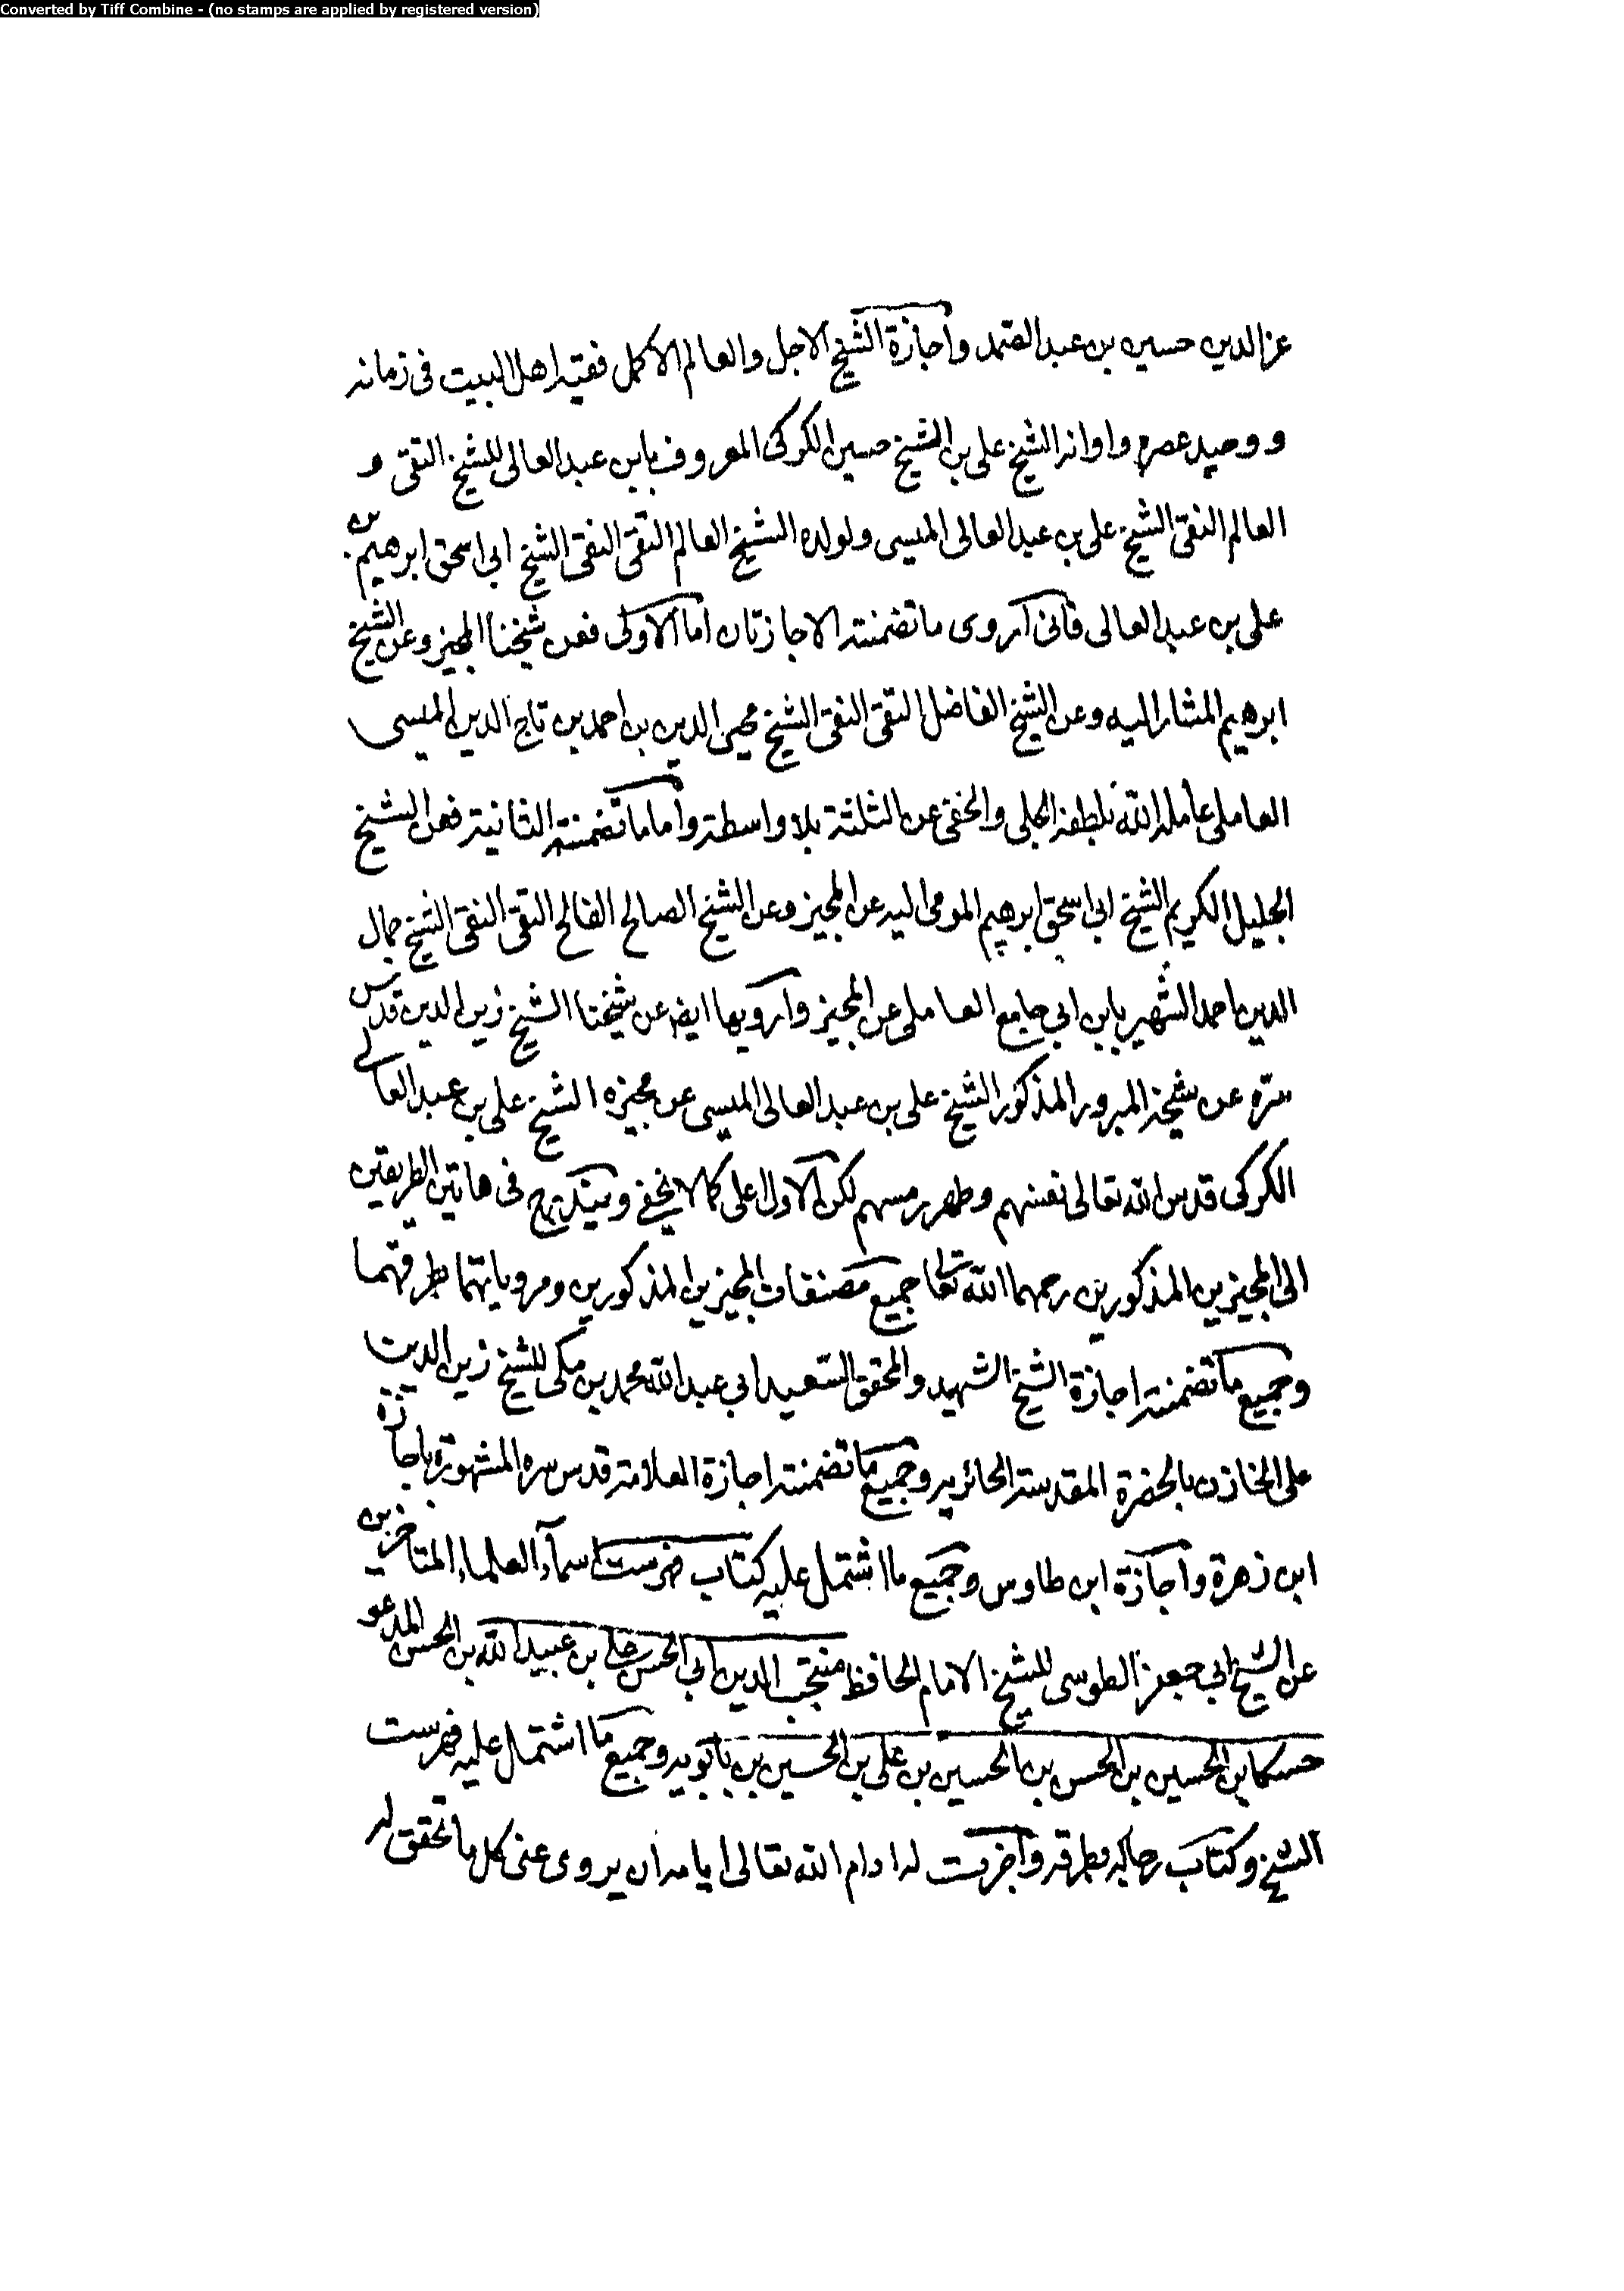 Converted by Tiff Combine - (no stamps are applied by registered version)
عز الدين حسين بن عبد الصمد واجازة الشيخ الاجل والعالم الاكمل فقيه اهل البيت فى زمانه
و وحيد عصره واوانه الشيخ على بن الشيخ حسين الكركى المعروف بابن عبد العالى للشيخ التقى و
العالم النقى الشيخ على بن عبد العالى الميسى ولولده الشيخ العالم التقى النقى الشيخ ابى اسحق ابرهيم بن
على بن عبد العالى فانى اروى ما تضمنته الاجازتان اما الاولى فعن شيخنا المجيز وعن الشيخ
ابرهيم المشار اليه وعن الشيخ الفاضل التقى النقى الشيخ محيى الدين بن احمد بن تاج الدين الميسى
العاملى عامله الله بلطفه الجلى والخفى عن الثلثة بلا واسطة واما ما تضمنته الثانية فعن الشيخ
الجليل الكريم الشيخ ابى اسحق ابرهيم المومى اليه عن المجيز وعن الشيخ الصالح الفالح التقى النقى الشيخ جمال
الدين احمد الشهير بابن ابى جامع العاملى عن المجيز وارويها ايضا عن شيخنا الشيخ زين الدين قدس
سره عن شيخه المبرور المذكور الشيخ على بن عبد العالى الميسى عن مجيزه الشيخ على بن عبد العالى
الكركى قدس الله تعالى نفسهم وطهر رمسهم لكن الاول اعلى كما لا يخفى ويندرج فى هاتين الطريقين
الى المجيزين المذكورين رحمهما الله تعالى جميع مصنفات المجيزين المذكورين ومروياتهما بطرقهما
وجميع ما تضمنته اجازة الشيخ الشهيد والمحقق السعيد ابى عبد الله محمد بن مكى للشيخ زين الدين
على الخازن بالحضرة المقدسة الحائريه وجميع ما تضمنته اجازة العلامة قدس سره المشهورة باجازة
ابن زهرة واجازة ابن طاوس وجميع ما اشتمل عليه كتاب فهرست اسمآء العلماء المتاخرين
عن الشيخ ابى جعفر الطوسى للشيخ الامام الحافظ منتجب الدين ابى الحسن على بن عبيد الله بن الحسن المدعو
حسكا بن الحسين بن الحسن بن الحسين بن على بن الحسين بن بابويه وجميع ما اشتمل عليه فهرست
الشيخ وكتاب رجاله بطرقه واجزت له ادام الله تعالى ايامه ان يروى عنى كل ما تحقق له